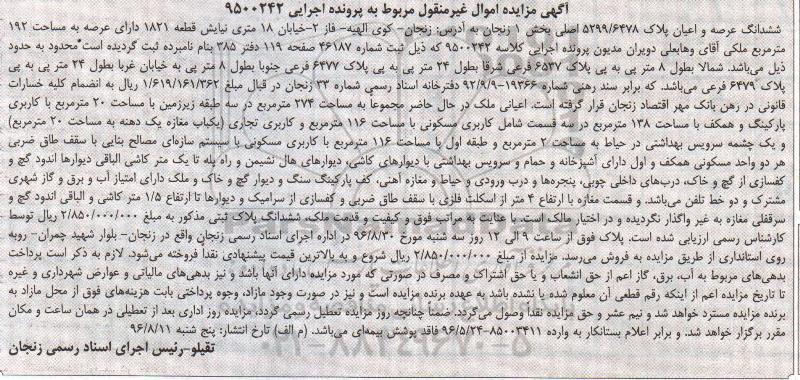 آگهی مزایده اموال غیرمنقول مربوط به پرونده اجرایی ۹۵۰۰۲۴۲
ششدانگ عرصه و اعیان پلاک ۵۲۹۹/۶۴۷۸ اصلی بخش ۱ زنجان به آدرس: زنجان- کوی الهیه- فاز ۲-خیابان ۱۸ متری نیایش قطعه ۱۸۲۱ دارای عرصه به مساحت ۱۹۲
مترمربع ملکی آقای وهابعلی دویران مدیون پرونده اجرایی کلاسه ۹۵۰۰۲۴۲ که ذیل ثبت شماره ۴۶۱۸۷ صفحه ۱۱۹ دفتر ۳۸۵ بنام نامبرده ثبت گردیده است محدود به حدود
ذیل می‌باشد. شمالا بطول ۸ متر پی به پی پلاک ۶۵۳۷ فرعی شرقا بطول ۲۴ متر پی به پی پلاک ۶۴۷۷ فرعی جنوبا بطول ۸ متر پی به خیابان غربا بطول ۲۴ متر پی به پی
پلاک ۶۴۷۹ فرعی می‌باشد. که برابر سند رهنی شماره ۱۹۳۶۶-۹۲/۹/۹ دفترخانه اسناد رسمی شماره ۳۳ زنجان در قبال مبلغ ۱/۶۱۹/۱۶۱/۳۶۲ ریال به انضمام کلیه خسارات
قانونی در رهن بانک مهر اقتصاد زنجان قرار گرفته است. اعیانی ملک در حال حاضر مجموعاً به مساحت ۲۷۴ مترمربع در سه طبقه زیرزمین با مساحت ۲۰ مترمربع با کاربری
پارکینگ و همکف با مساحت ۱۳۸ مترمربع در سه قسمت شامل کاربری مسکونی با مساحت ۱۱۶ مترمربع و کاربری تجاری (یکباب مغازه یک دهنه به مساحت ۲۰ مترمربع)
و یک چشمه سرویس بهداشتی در حیاط به مساحت ۲ مترمربع و طبقه اول با مساحت ۱۱۶ مترمربع با کاربری مسکونی با سیستم سازه‌ای مصالح بنایی با سقف طاق ضربی
هر دو واحد مسکونی همکف و اول دارای آشپزخانه و حمام و سرویس بهداشتی با دیوارهای کاشی، دیوارهای هال نشیمن و راه پله تا یک متر کاشی الباقی دیوارها اندود گچ و
کفسازی از گچ و خاک، درب‌های داخلی چوبی، پنجره‌ها و درب ورودی و حیاط و مغازه آهنی، کف پارکینگ سنگ و دیوار گچ و خاک و ملک دارای امتیاز آب و برق و گاز شهری
مشترک و دو خط تلفن می‌باشد. و قسمت مغازه با ارتفاع ۴ متر از اسکلت فلزی با سقف طاق ضربی و کفسازی از سرامیک و دیوارها تا ارتفاع ۱/۵ متر کاشی و الباقی اندود گچ و
سرقفلی مغازه به غیر واگذار نگردیده و در اختیار مالک است. با عنایت به مراتب فوق و کیفیت و قدمت ملک، ششدانگ پلاک ثبتی مذکور به مبلغ ۲/۸۵۰/۰۰۰/۰۰۰ ریال توسط
کارشناس رسمی ارزیابی شده است. پلاک فوق از ساعت ۹ الی ۱۲ روز سه شنبه مورخ ۹۶/۸/۳۰ در اداره اجرای اسناد رسمی زنجان واقع در زنجان- بلوار شهید چمران- روبه
روی استانداری از طریق مزایده به فروش می‌رسد. مزایده از مبلغ ۲/۸۵۰/۰۰۰/۰۰۰ ریال شروع و به بالاترین قیمت پیشنهادی نقداً فروخته می‌شود. لازم به ذکر است پرداخت
بدهی‌های مربوط به آب، برق، گاز اعم از حق انشعاب و یا حق اشتراک و مصرف در صورتی که مورد مزایده دارای آنها باشد و نیز بدهی‌های مالیاتی و عوارض شهرداری و غیره
تا تاریخ مزایده اعم از اینکه رقم قطعی آن معلوم شده یا نشده باشد به عهده برنده مزایده است و نیز در صورت وجود مازاد، وجوه پرداختی بابت هزینه‌های فوق از محل مازاد به
برنده مزایده مسترد خواهد شد و نیم عشر و حق مزایده نقداً وصول می‌گردد. ضمناً چنانچه روز مزایده تعطیل رسمی گردد، مزایده روز اداری بعد از تعطیلی در همان ساعت و مکان
مقرر برگزار خواهد شد. و برابر اعلام بستانکار به وارده ۸۵۰۰۳۴۱۱-۹۶/۵/۲۴ فاقد پوشش بیمه‌ای می‌باشد. (م الف) تاریخ انتشار: پنج شنبه ۹۶/۸/۱۱
تقیلو-رئیس اجرای اسناد رسمی زنجان